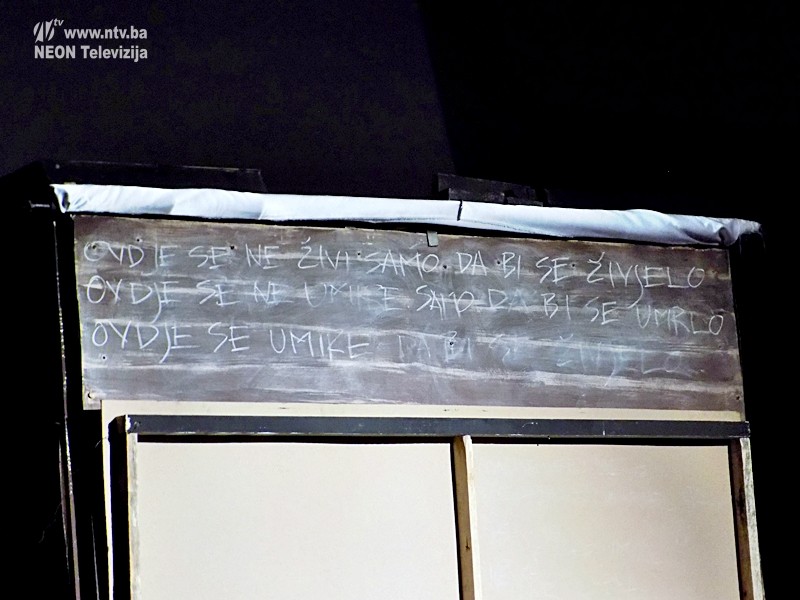 tv www.ntv.ba
NEON Televizija
OVDJE SE NE ŽIVI SAMO DA BI SE ŽIVJELO
OVDJE SE NE UMIRE SAMO DA BI SE UMRLO
OVDJE SE UMIRE DA BI SE ŽIVJELO